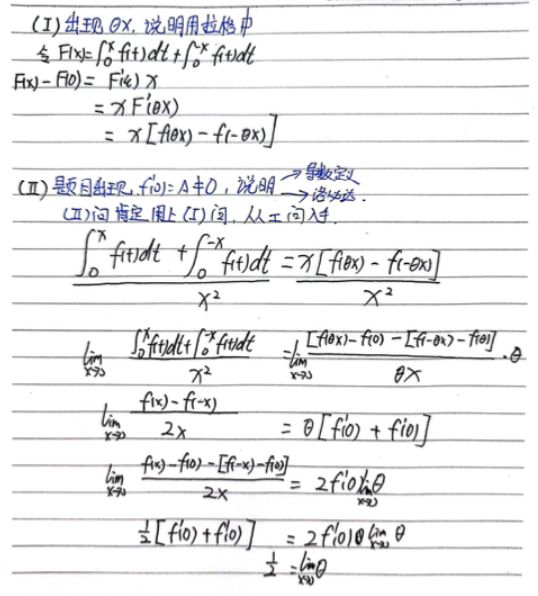 (I) 出现 θx, 说明用拉格中
令 F(x)=∫₀ˣ f(t)dt+∫₀⁻ˣ f(t)dt
F(x)-F(0)= F'(ξ) x
= x F'(θx)
= x [f(θx) - f(-θx)]
(II) 题目出现, f'(0)=A≠0, 说明 →导数定义
→洛必达.
(II)问肯定用上(I)问, 从工问入手.
(∫₀ˣ f(t)dt + ∫₀⁻ˣ f(t)dt)/x² = x[f(θx) - f(-θx)]/x²
lim x→0 (∫₀ˣ f(t)dt+∫₀⁻ˣ f(t)dt)/x² = lim x→0 ([f(θx)-f(0) - [f(-θx)-f(0)]])/(θx) ·θ
lim x→0 (f(x)-f(-x))/2x = θ[f'(0) + f'(0)]
lim x→0 (f(x)-f(0)-[f(-x)-f(0)])/2x = 2f'(0) lim x→0 θ
½[f'(0)+f'(0)] = 2f'(0) lim x→0 θ
½ = lim x→0 θ